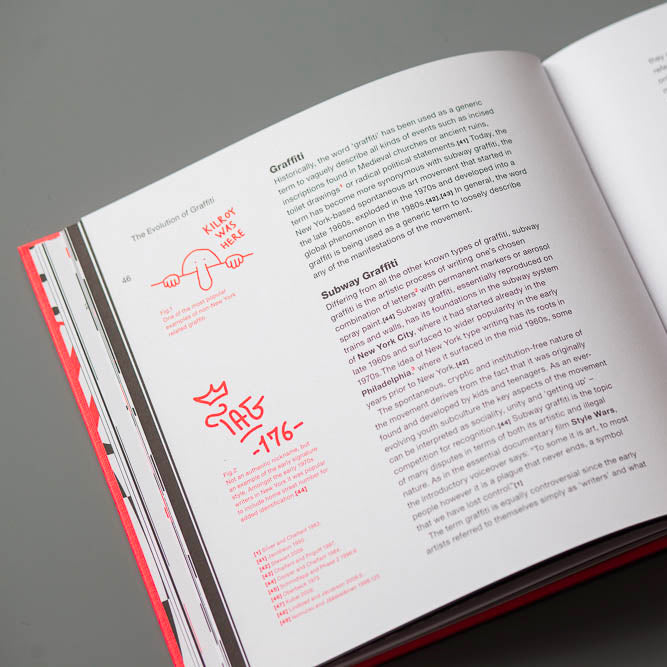 The Evolution of Graffiti
46
KILROY
WAS
HERE
Fig.1
One of the most popular
examples of non-New York
related graffiti.
TAG
-176-
Fig.2
Not an authentic nickname, but
an example of the early signature
style. Amongst the early 1970s
writers in New York it was popular
to include home street number for
added identification.[44]
[1] Silver and Chalfant 1983.
[41] Jacobson 1990.
[42] Stewart 2009.
[43] Chalfant and Prigoff 1987.
[44] Cooper and Chalfant 1984.
[45] Schmidlapp and Phase 2 1996:6.
[46] Oberbeck 1973.
[47] Kuhar 2006.
[48] Lindblad and Jacobson 2003:
[49]
Graffiti
Historically, the word 'graffiti' has been used as a generic
term to vaguely describe all kinds of events such as incised
inscriptions found in Medieval churches or ancient ruins,
toilet drawings¹ or radical political statements.[41] Today, the
term has become more synonymous with subway graffiti, the
New York-based spontaneous art movement that started in
the late 1960s, exploded in the 1970s and developed into a
global phenomenon in the 1980s.[42],[43] In general, the word
graffiti is being used as a generic term to loosely describe
any of the manifestations of the movement.
Subway Graffiti
Differing from all the other known types of graffiti, subway
graffiti is the artistic process of writing one's chosen
combination of letters² with permanent markers or aerosol
spray paint.[44] Subway graffiti, essentially reproduced on
trains and walls, has its foundations in the subway system
of New York City, where it had started already in the
late 1960s and surfaced to wider popularity in the early
1970s. The idea of New York type writing has its roots in
Philadelphia,³ where it surfaced in the mid 1960s, some
years prior to New York.[42]
The spontaneous, cryptic and institution-free nature of
the movement derives from the fact that it was originally
found and developed by kids and teenagers. As an ever-
evolving youth subculture the key aspects of the movement
can be interpreted as sociality, unity and 'getting up' –
competition for recognition.[44] Subway graffiti is the topic
of many disputes in terms of both its artistic and illegal
nature. As in the essential documentary film Style Wars,
the introductory voiceover says: "To some it is art, to most
people however it is a plague that never ends, a symbol
that we have lost control."[1]
The term graffiti is equally controversial since the early
artists referred to themselves simply as 'writers' and what
they